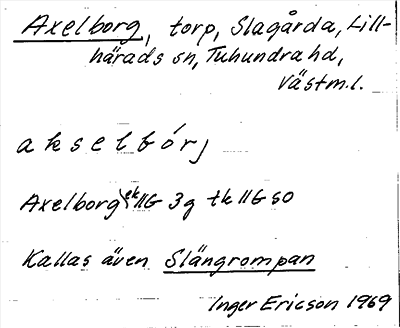 Axelborg, torp, Slagårda, Lill-
härads sn, Tuhundra hd,
Västm.l.
akselbórj
Axelborg ek 11G 3g tk 11G SO
Kallas även Slängrompan
Inger Ericson 1969